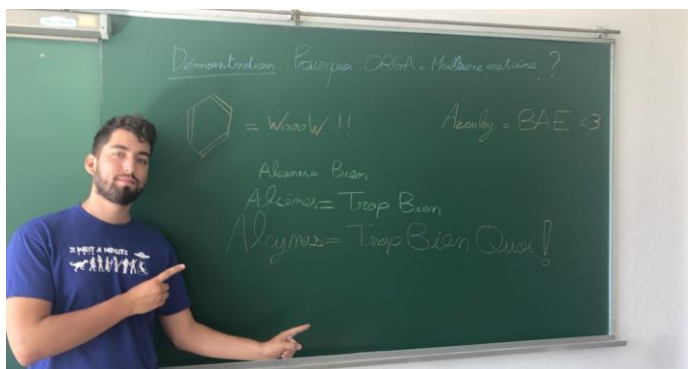 Démonstration: Pourquoi ORGA = Meilleure matière ?
= WoooW !!
Azouby = BAE <3
Alcanes = Bien
Alcènes = Trop Bien
Alcynes = Trop Bien Quoi !
WAIT A MINUTE